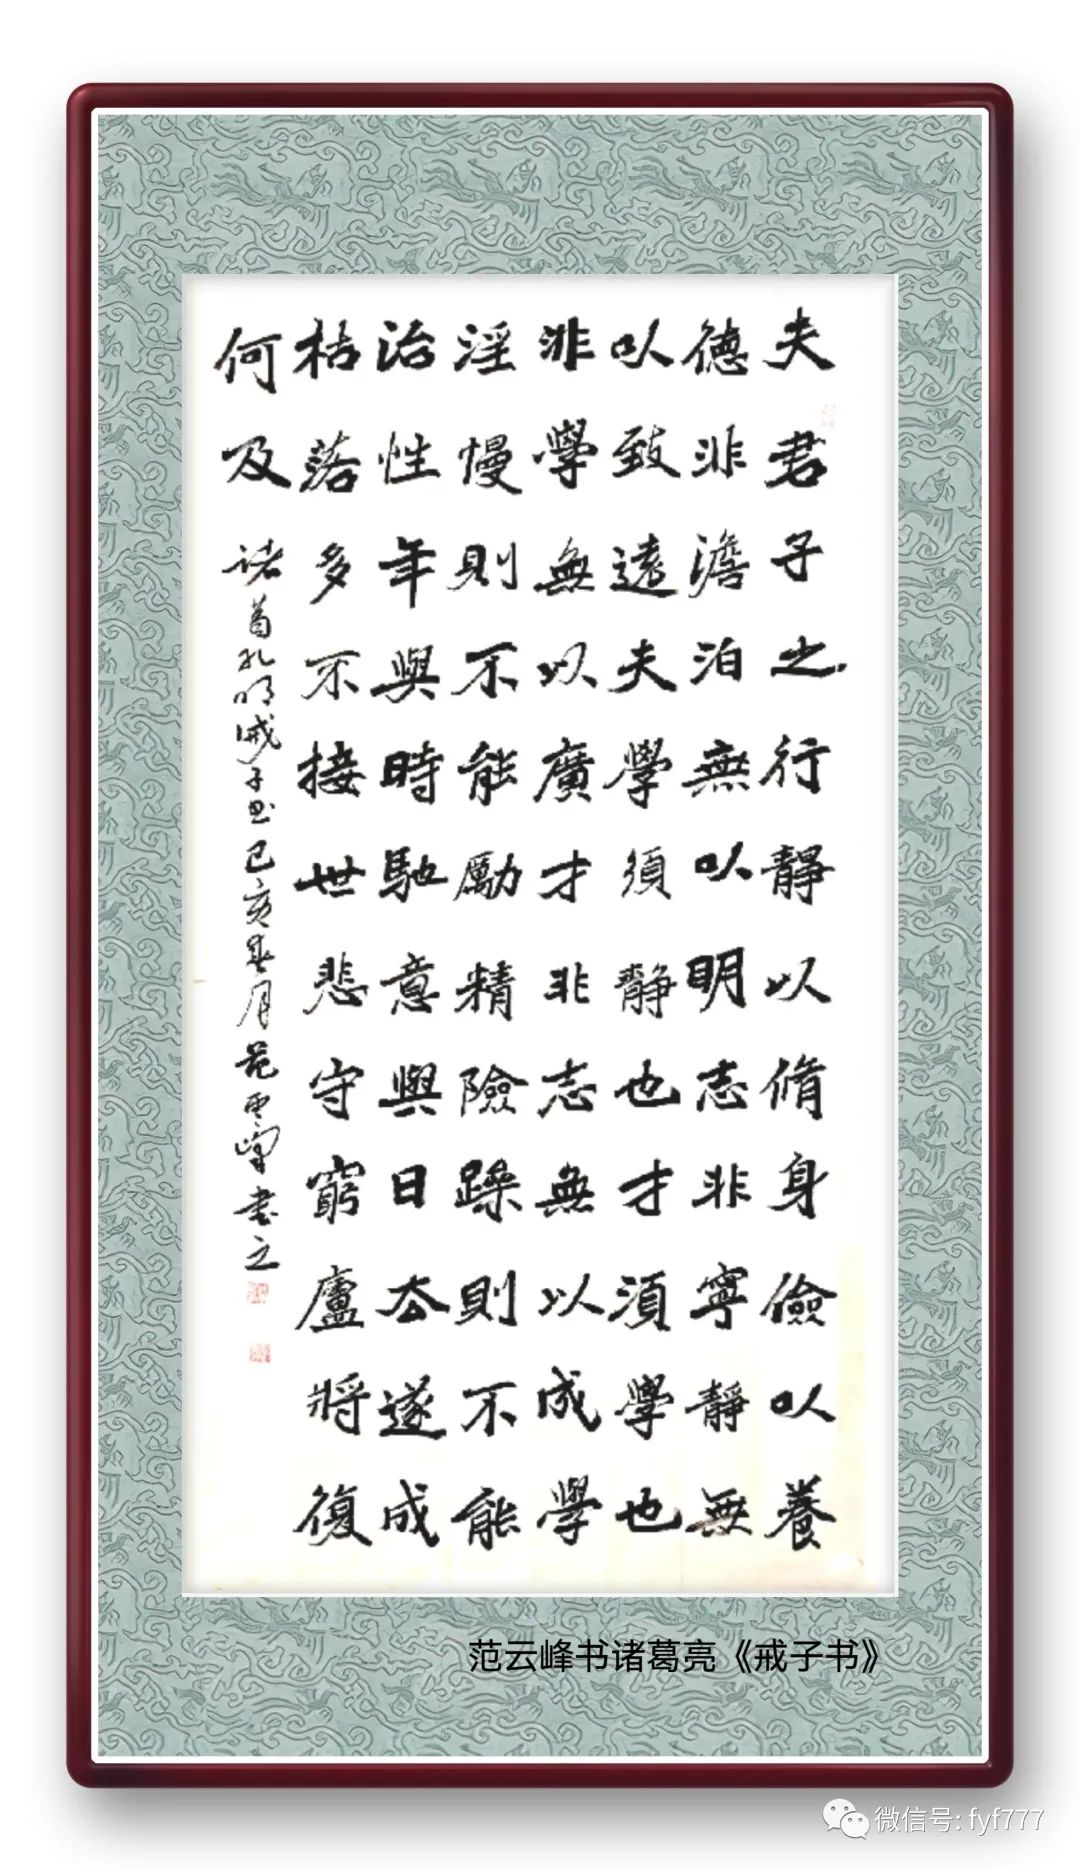 夫君子之行靜以脩身儉以養
德非澹泊無以明志非寧靜無
以致遠夫學須靜也才須學也
非學無以廣才非志無以成學
淫慢則不能勵精險躁則不能
治性年與時馳意與日去遂成
枯落多不接世悲守窮廬將復
何及
诸葛孔明诫子书己亥春月范云峰书之
范云峰书诸葛亮《戒子书》
微信号: fyf777